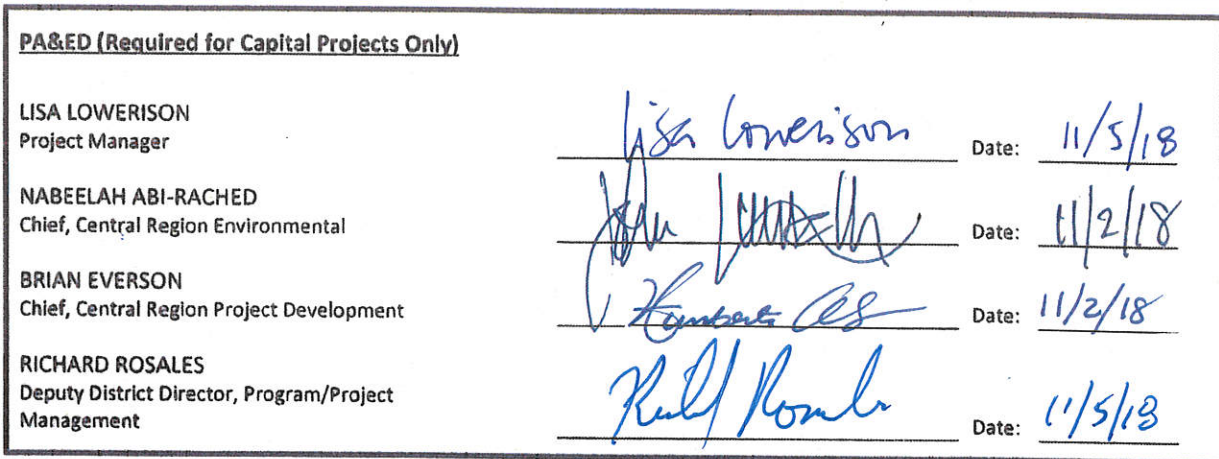 PA&ED (Required for Capital Projects Only)
LISA LOWERISON
Project Manager
Lisa Lowerison Date: 11/5/18
NABEELAH ABI-RACHED
Chief, Central Region Environmental
Date: 11/2/18
BRIAN EVERSON
Chief, Central Region Project Development
Date: 11/2/18
RICHARD ROSALES
Deputy District Director, Program/Project
Management
Date: 11/5/18